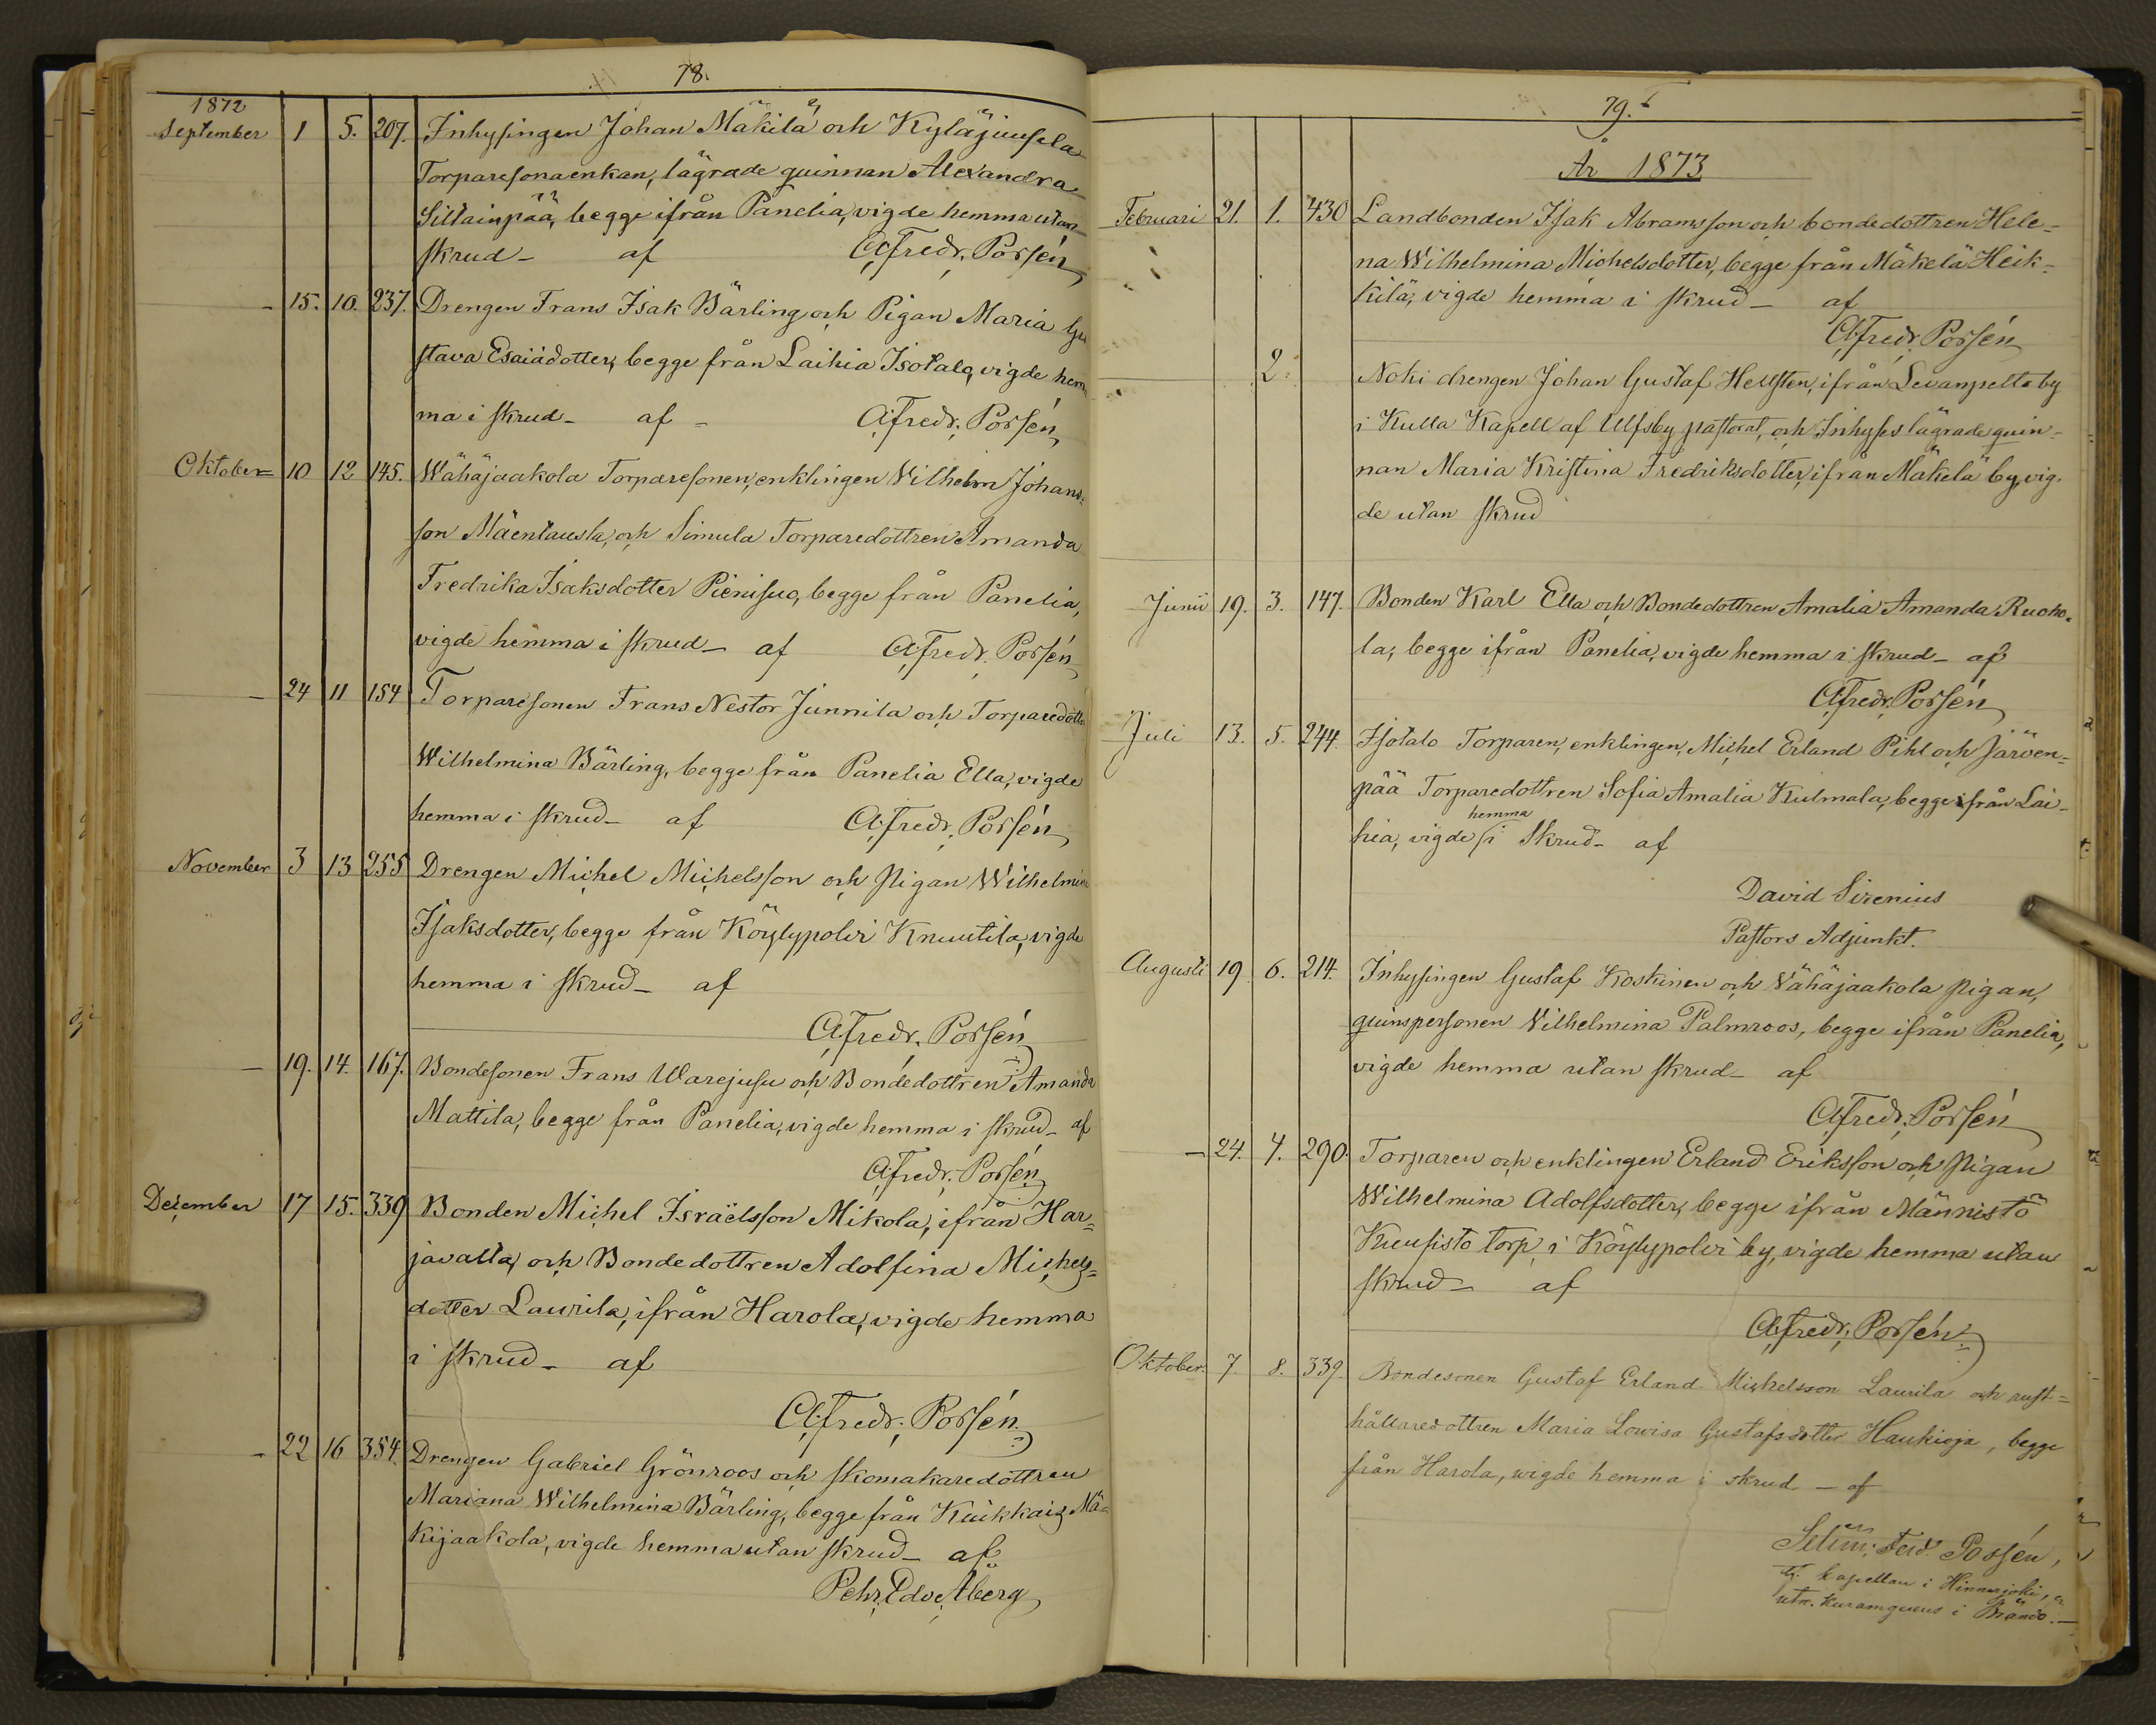 78.
1872
September 1 5. 207. Inhysingen Johan Mäkilä och Kyläjuusela
Torparesonaenkan, lägrade quinnan Alexandra
Siltainpää, begge ifrån Panelia, vigde hemma utan
skrud_ af A:Fredr. Porsén
_ 15. 10. 237. Drengen Frans Isak Bärling och Pigan Maria Gu
stava Esaiädotter, begge från Laihia Isotalo, vigde hem
ma i skrud_ af _ A:Fredr. Porsén
Oktober 10 12 145. Wähäjaakola Torparesonen, enklingen Vilhelm Johans-
son Mäentausta, och Simula Torparedottren Amanda
Fredrika Isaksdotter Pienisuo, begge från Panelia,
vigde hemma i skrud_ af A:Fredr. Porsén
_ 24 11 154 Torparesonen Frans Nestor Junnila och Torparedottr
Wilhelmina Bärling, begge från Panelia Ella, vigde
hemma i skrud_ af A:Fredr. Porsén
November 3 13 255 Drengen Michel Michelsson och Pigan Wilhelmin
Isaksdotter, begge från Köylypolvi Knuutila, vigde
hemma i skrud_ af
A:Fredr. Porsén
_ 19. 14. 167. Bondesonen Frans Uwarejusu och Bondedottren Amanda
Mattila, begge från Panelia, vigde hemma i skrud_ af
A:Fredr. Porsén
December 17 15. 339 Bonden Michel Israëlsson Mikola, ifrån Har=
javalta, och Bondedottren Adolfina Michels=
dotter Laurila, ifrån Harola, vigde hemma
i skrud_ af
A:Fredr. Porsén
_ 22 16 354. Drengen Gabriel Grönroos och skomakaredottren
Mariana Wilhelmina Bärling, begge från Kiukkais Mä=
kijaakola, vigde hemma utan skrud_ af
Pehr Edv. Åberg
79.
År 1873
Februari 21. 1. 430 Landbonden Isak Abramsson och bondedottren Hele-
na Wilhelmina Michelsdotter, begge från Mäkelä Heik-
kilä, vigde hemma i skrud_ af
A:Fredr. Porsén
2. Noki drengen Johan Gustaf Hellsten, ifrån Levanpelto by
i Kulla Kapell af Ulfsby pastorat, och Inhyses lägrade quin-
nan Maria Kristina Fredriksdotter, ifrån Mäkelä by, vig-
de utan skrud
Junii 19. 3. 147. Bonden Karl Ella och Bondedottren Amalia Amanda Ruoho-
la, begge ifrån Panelia, vigde hemma i skrud_ af
A:Fredr. Porsén
Juli 13. 5. 244. Isotalo Torparen, enklingen, Michel Erland Pihl och Järven-
pää Torparedottren Sofia Amalia Kulmala, begge ifrån Lai-
hemma
hia, vigde i Skrud_ af
David Sirenius
Pastors Adjunkt.
Augusti 19 6. 214. Inhysingen Gustaf Koskinen och Vähäjaakola pigan,
quinspersonen Vilhelmina Palmroos, begge ifrån Panelia,
vigde hemma utan skrud_ af
A:Fredr. Porsén
_ 24. 7. 290. Torparen och enklingen Erland Eriksson och Pigan
Wilhelmina Adolfsdotter, begge ifrån Männistö
Kuusisto torp i Köylypolvi by, vigde hemma utan
skrud_ af
A:Fredr. Porsén
Oktober. 7. 8. 339. Bondesonen Gustaf Erland Michelsson Laurila och rust=
hållaredottren Maria Lovisa Gustafsdotter Haukioja, begge
från Harola, wigde hemma i skrud _ af
Selim: Ferd. Porsén,
tj. kapellan i Hinnerjoki,
utn. i Brändö._